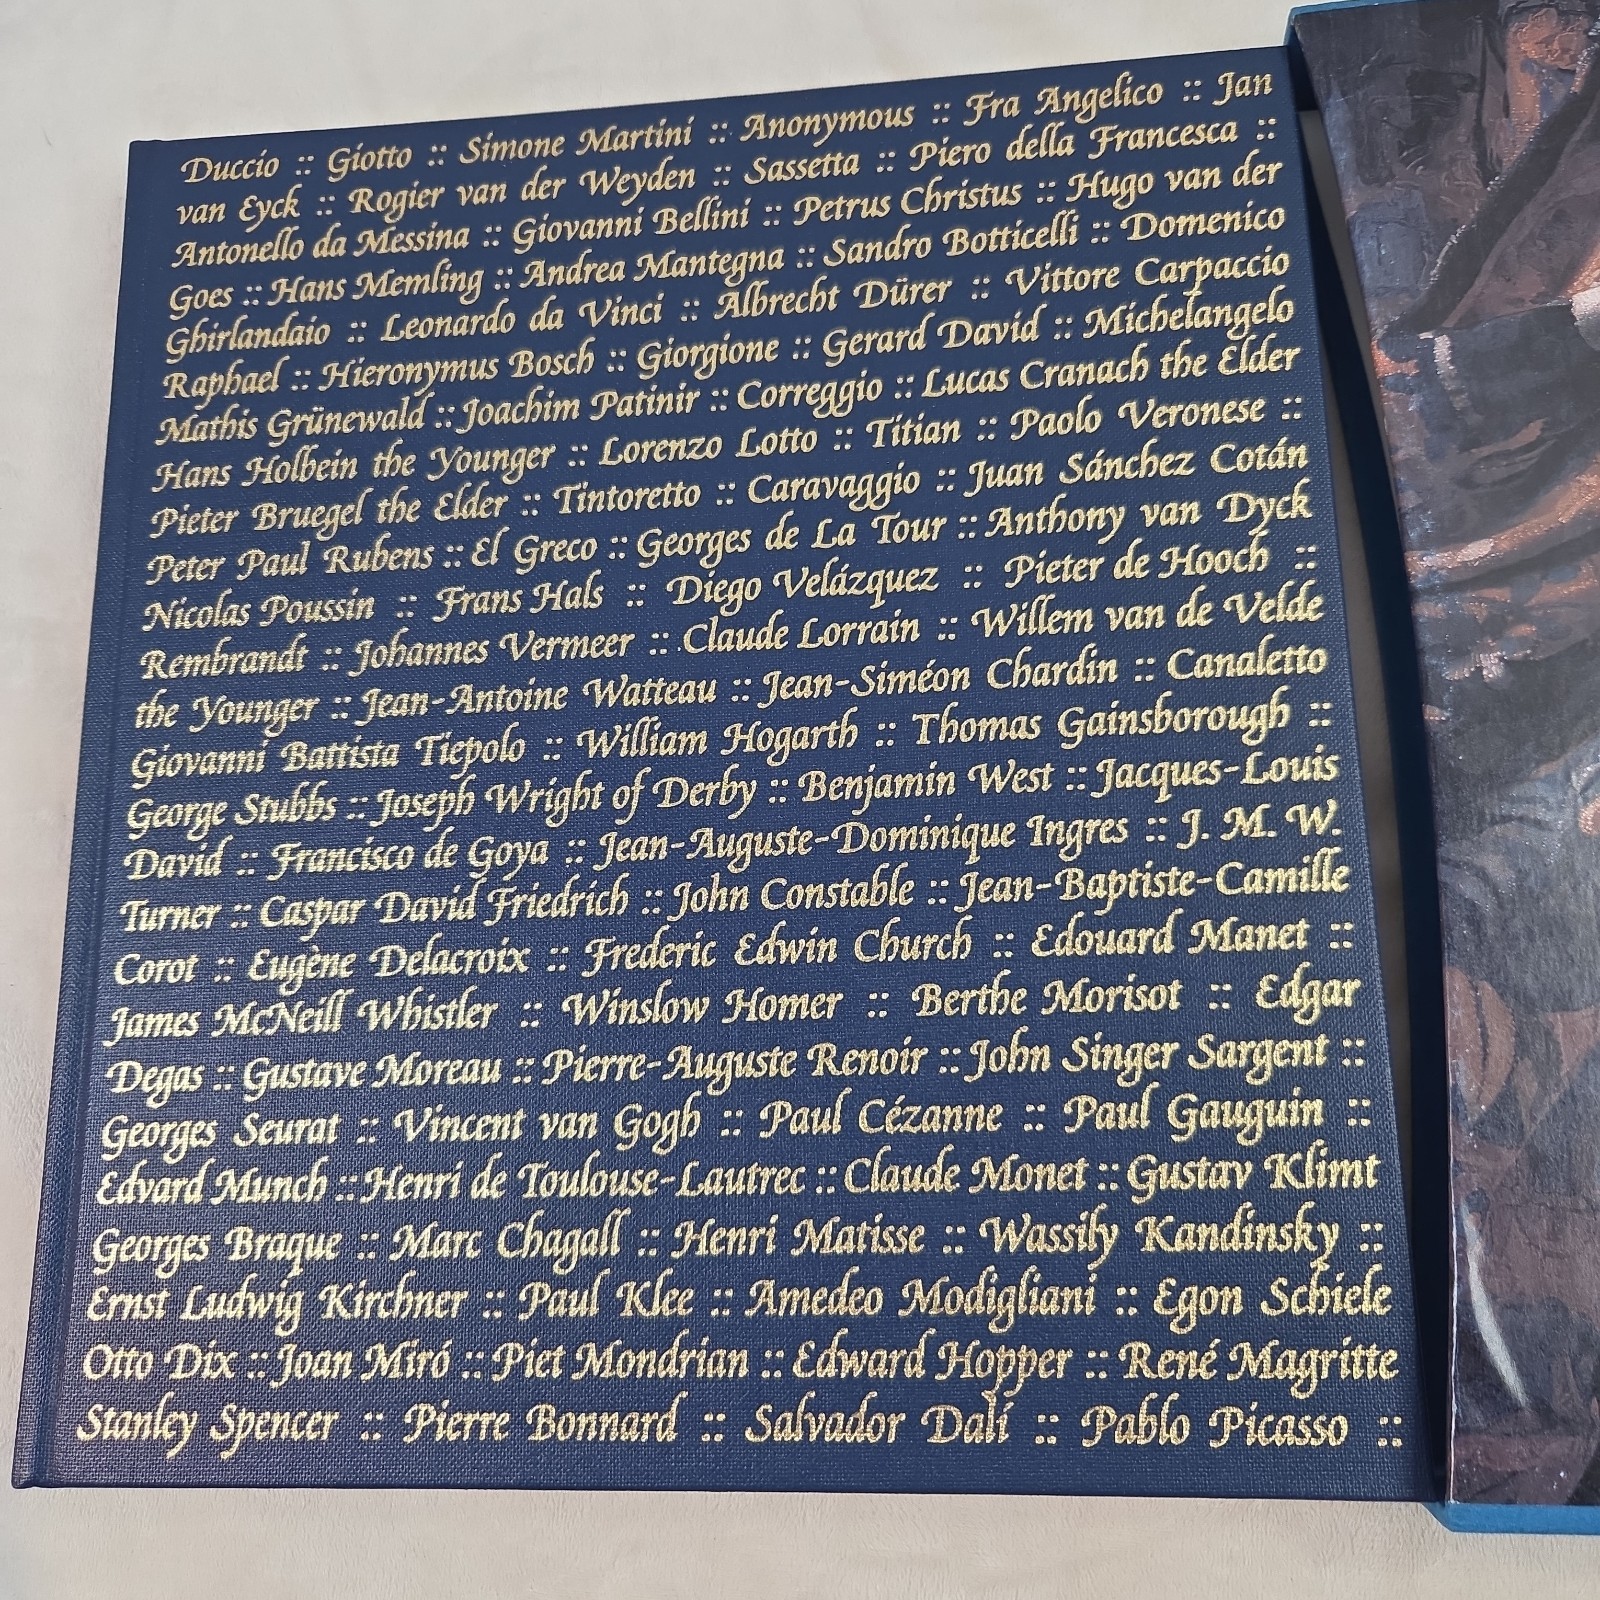 Duccio :: Giotto :: Simone Martini :: Anonymous :: Fra Angelico :: Jan
van Eyck :: Rogier van der Weyden :: Sassetta :: Piero della Francesca ::
Antonello da Messina :: Giovanni Bellini :: Petrus Christus :: Hugo van der
Goes :: Hans Memling :: Andrea Mantegna :: Sandro Botticelli :: Domenico
Ghirlandaio :: Leonardo da Vinci :: Albrecht Dürer :: Vittore Carpaccio
Raphael :: Hieronymus Bosch :: Giorgione :: Gerard David :: Michelangelo
Mathis Grünewald :: Joachim Patinir :: Correggio :: Lucas Cranach the Elder
Hans Holbein the Younger :: Lorenzo Lotto :: Titian :: Paolo Veronese ::
Pieter Bruegel the Elder :: Tintoretto :: Caravaggio :: Juan Sánchez Cotán
Peter Paul Rubens :: El Greco :: Georges de La Tour :: Anthony van Dyck
Nicolas Poussin :: Frans Hals :: Diego Velázquez :: Pieter de Hooch ::
Rembrandt :: Johannes Vermeer :: Claude Lorrain :: Willem van de Velde
the Younger :: Jean-Antoine Watteau :: Jean-Siméon Chardin :: Canaletto
Giovanni Battista Tiepolo :: William Hogarth :: Thomas Gainsborough ::
George Stubbs :: Joseph Wright of Derby :: Benjamin West :: Jacques-Louis
David :: Francisco de Goya :: Jean-Auguste-Dominique Ingres :: J. M. W.
Turner :: Caspar David Friedrich :: John Constable :: Jean-Baptiste-Camille
Corot :: Eugène Delacroix :: Frederic Edwin Church :: Edouard Manet ::
James McNeill Whistler :: Winslow Homer :: Berthe Morisot :: Edgar
Degas :: Gustave Moreau :: Pierre-Auguste Renoir :: John Singer Sargent ::
Georges Seurat :: Vincent van Gogh :: Paul Cézanne :: Paul Gauguin ::
Edvard Munch :: Henri de Toulouse-Lautrec :: Claude Monet :: Gustav Klimt
Georges Braque :: Marc Chagall :: Henri Matisse :: Wassily Kandinsky ::
Ernst Ludwig Kirchner :: Paul Klee :: Amedeo Modigliani :: Egon Schiele
Otto Dix :: Joan Miró :: Piet Mondrian :: Edward Hopper :: René Magritte
Stanley Spencer :: Pierre Bonnard :: Salvador Dalí :: Pablo Picasso ::